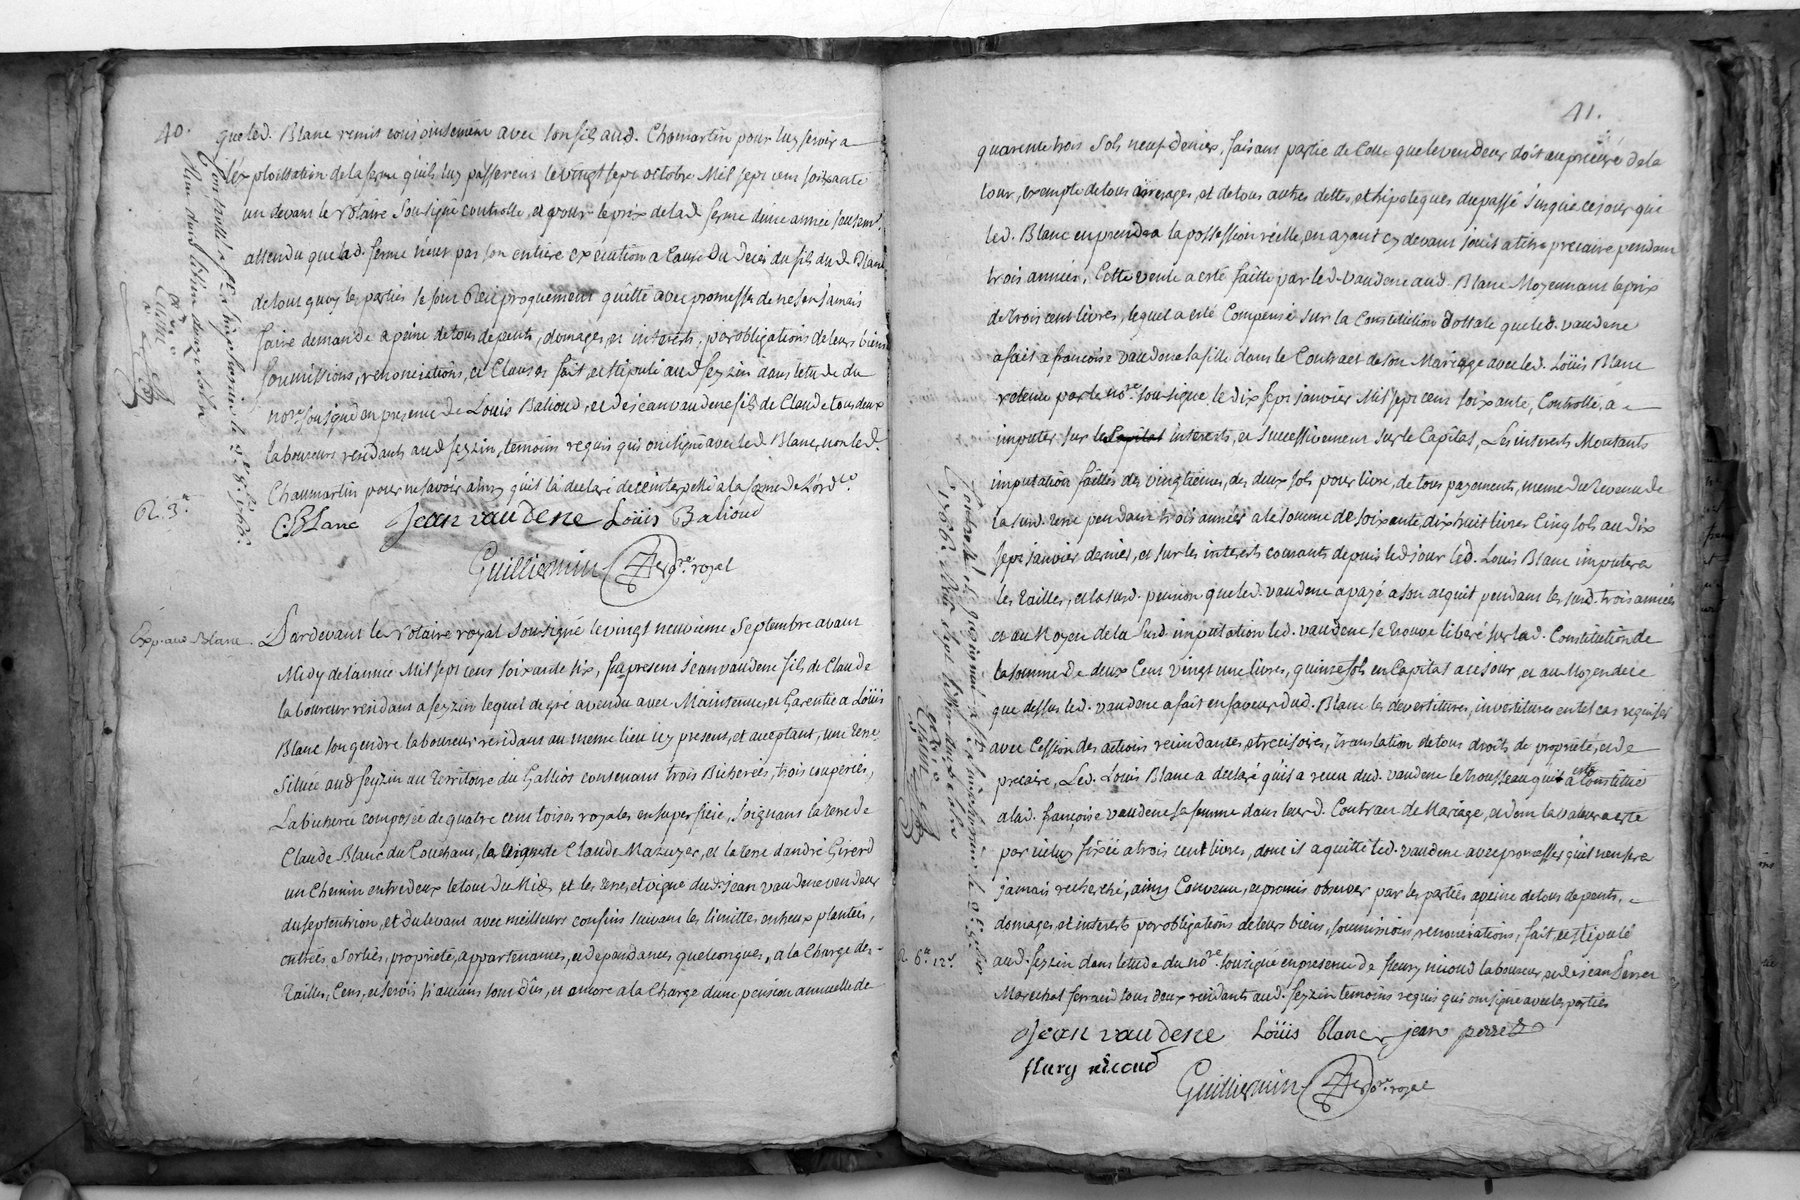 40.
que led. Blanc remit conjointement avec son fils aud. Chomartin pour luy servir a
l'exploittation de la ferme quils luy passerent le vingt sept octobre Mil sept cent soixante
un devant le Notaire Sousigné controllé, et pour le prix de lad. ferme d'une année seulemt.
attendu que lad. ferme n'eut pas son entiere execution a Cause du deces du fils du d. Blanc
de tout quoy les parties se sont Reciproquement quitté avec promesses de ne s'en jamais
faire demande a peine de tous depents, domages, et interests, par obligations de leurs biens
soumissions, renonciations, et Clauses fait, et stipulé aud. feyzin dans letude du
nore. sousigné en presence de Louis Balioud, et de jean vaudene fils de Claude tous deux
laboureurs residants aud. feyzin, temoins requis qui ont signé avec led. Blanc, non led.
Chaumartin pour ne savoir ainsy quil la declaré de ce interpellé a la forme de L'ordce.
R. 3 lt
C. Blanc Jean vaudene Loüis Balioud
Guilliermin nore. royal
Exp. aud Blanc
Pardevant le Notaire royal Sousigné le vingt neuvieme Septembre avant
Midy de l'année Mil sept cent soixante six, fut present jean vaudene fils de Claude
laboureur residant a feyzin lequel de gré a vendu avec Maintenue, et Garentie a Loüis
Blanc son gendre laboureur residant au meme lieu icy present, et acceptant, une terre
Située aud feyzin au territoire du Gallios contenant trois Bicherées, trois couperées,
La bicherée composée de quatre cent toises royales en superficie, joignant la terre de
Claude Blanc du Couchant, la vigne de Claude Mazuyer, et la terre dandré Girerd
un Chemin entre deux le tout du Midy, et les terre, et vigne dud. jean vaudene vendeur
du septentrion, et du levant avec meilleurs confins suivant les limittes entreux plantés,
entrées, Sorties, proprieté, appartenances, et dépendances quelconques, a la Charge des
Tailles, Cens, et servis si aucuns sont dûs, et encore a la Charge d'une pension annuelle de
41.
quarente trois sols neuf deniers, faisant partie de Celle que le vendeur doit au prieuré de la
tour, exempte de tous arrerages, et de tous autres dettes, et hipoteques du passé jusque ce jour que
led. Blanc en prendra la possession réelle, en ayant cy devant jouit a titre precaire pendant
trois années. Cette vente a esté faitte par led. vaudene aud. Blanc Moyennant le prix
de trois cent livres, lequel a esté Compensé sur la Constitution dottale que led. vaudene
a fait a françoise vaudene sa fille dans le Contract de son Mariage avec led. Loüis Blanc
retenu par le nore. sousigné le dix sept janvier Mil sept cent soixante, Controllé, a
imputer sur les Capital interests, et successivement sur le Capital, Les interests Montants
imputation faittes des vingtiemes, des deux sols pour livre, de tous payements, meme du revenu de
la susd. terre pendant trois années a la somme de soixante dix huit livres Cinq sols au dix
sept janvier dernier, et sur les interests courants depuis led. jour led. Louis Blanc imputera
les tailles, et la susd. pension que led. vaudene a payé a son acquit pendant les susd. trois années
et au Moyen de la susd. imputation led. vaudene se trouve libéré sur lad. Constitution de
la somme de deux Cent vingt une livres, quinze sols en Capital a ce jour, et au Moyen de ce
que dessus led. vaudene a fait en faveur dud. Blanc les devestitures, investitures en tel cas requises
avec Cession des actions recindantes, et recisoires, translation de tous droits de proprieté, et de
precaire, Led. Louis Blanc a declaré quil a reçu dud. vaudene le trousseau quil a esté Constitué
a lad. françoise vaudene sa femme dans leurd. Contract de Mariage, et dont la valeur a esté
par icelluy fixée a trois cent livres, dont il a quitté led. vaudene avec promesses quil n'en sera
jamais recherché, ainsy Convenu, et promis observer par les parties a peine de tous depents,
domages, et interests par obligations de leurs biens, soumissions, renonciations, fait, et stipulé
aud. feyzin dans letude du nore. sousigné en presence de fleury nicoud laboureur, et de jean Perret
Marechal ferrand tous deux residants aud. feyzin temoins requis qui ont signé avec les parties
R. 6 lt 12 s.
Jean vaudene Loüis blanc jean perret
flury nicoud
Guilliermin nore. royal